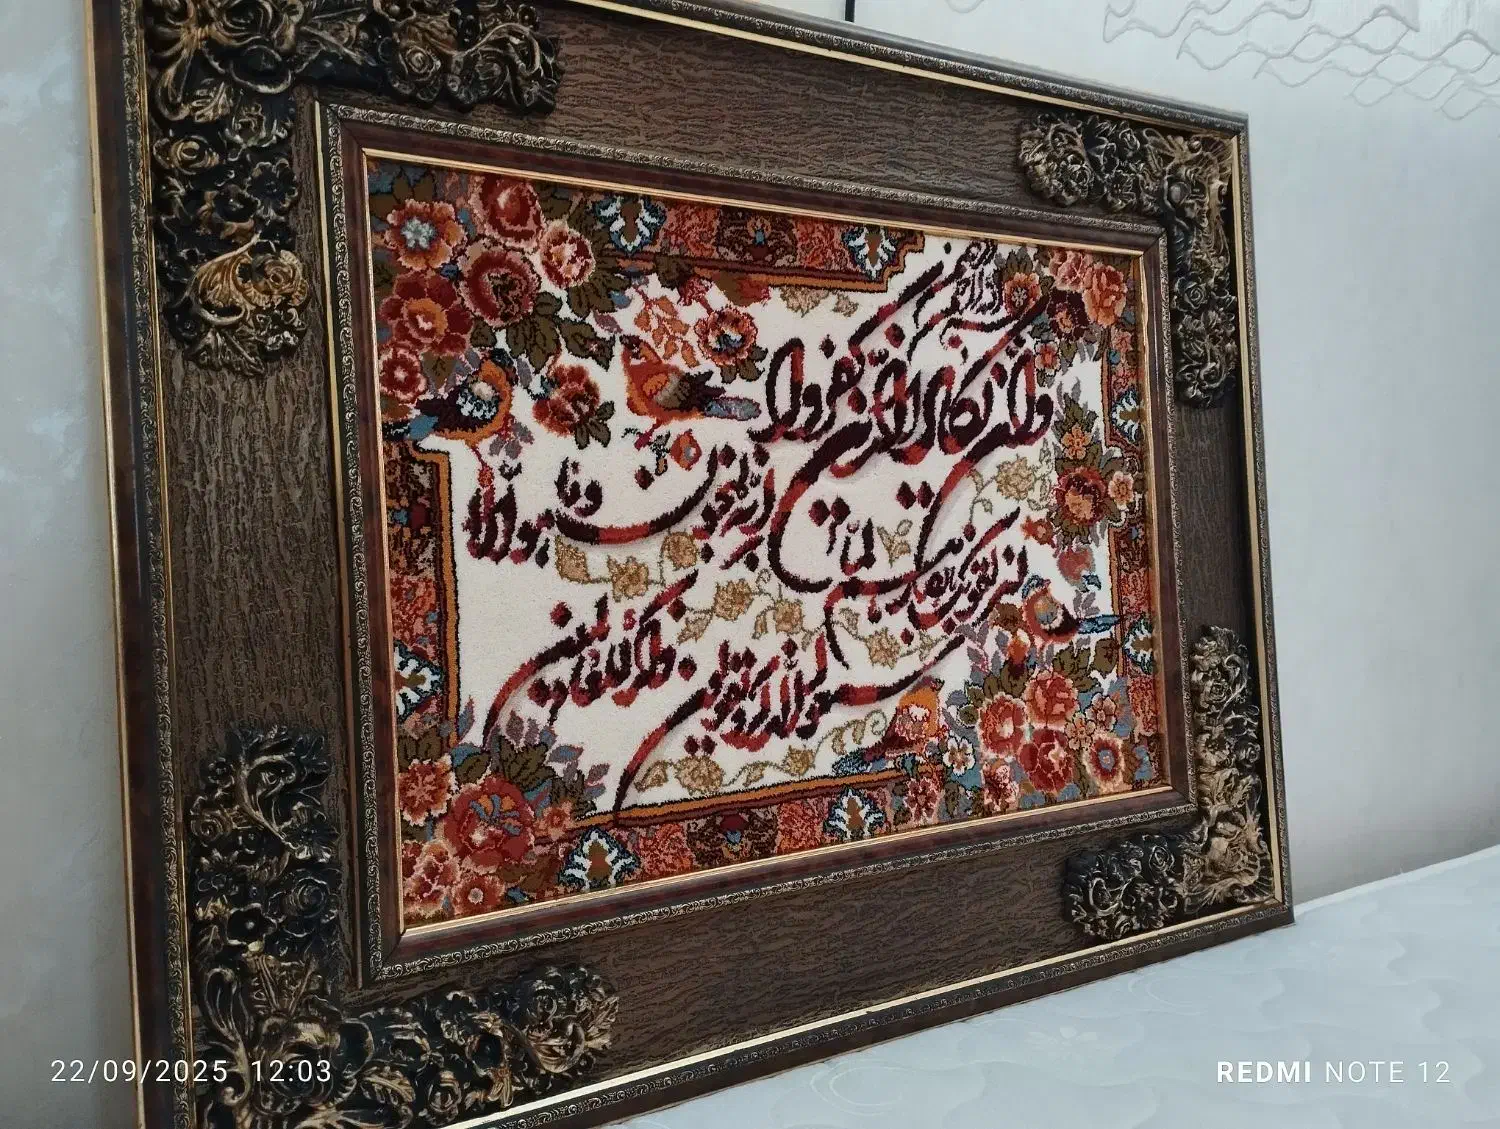 بسم الله الرحمن الرحیم
وان یکاد الذین کفروا
لیزلقونک بابصارهم لما
سمعوا الذکر و یقولون
انه لمجنون و ما هو الا
ذکر للعالمین
22/09/2025 12:03
REDMI NOTE 12